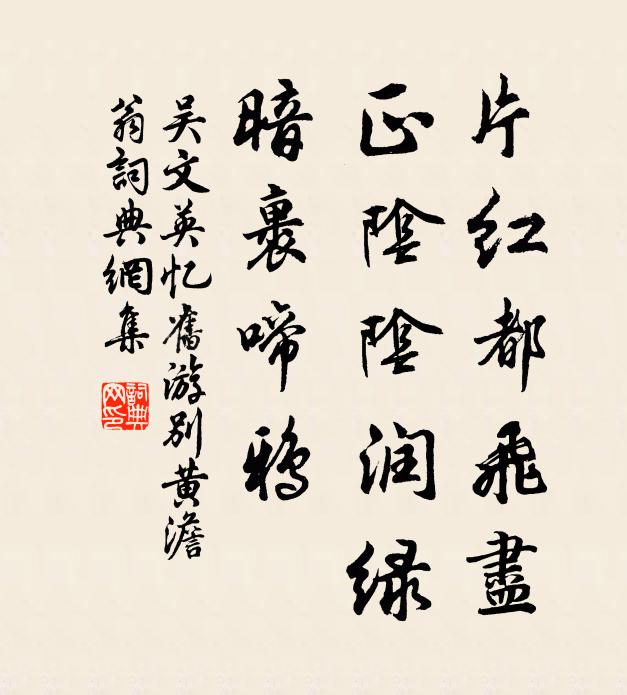 片红都飛盡
正陰陰润绿
暗裏啼鴉
吴文英忆舊游别黄澹
翁詞典網集
詞典網印